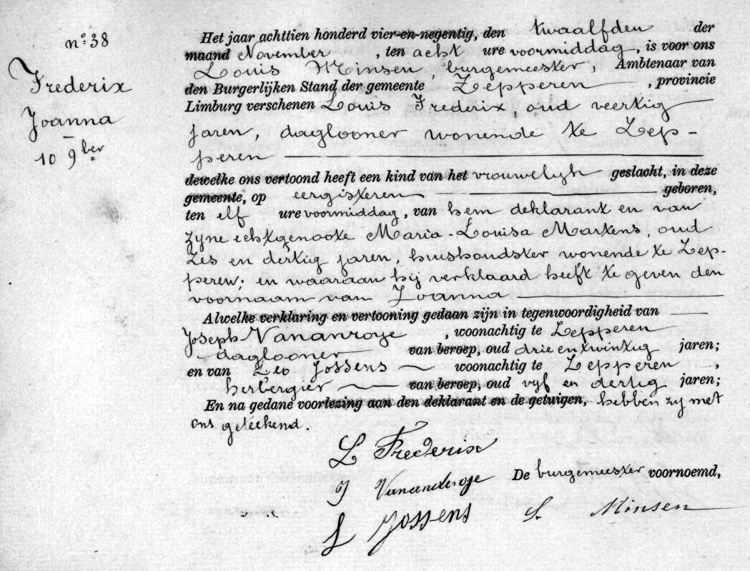 n:º 38
Frederix
Joanna
—
10 9ber
Het jaar achttien honderd vier-en-negentig, den twaalfden der
maand November , ten acht ure voormiddag, is voor ons
Louis Minsen, burgemeester, Ambtenaar van
den Burgerlijken Stand der gemeente Zepperen , provincie
Limburg verschenen Louis Frederix, oud veertig
jaren, daglooner wonende te Zep-
peren
dewelke ons vertoond heeft een kind van het vrouwelyk geslacht, in deze
gemeente, op eergisteren geboren,
ten elf ure voormiddag, van hem deklarant en van
zyne echtgenoote Maria-Louisa Martens, oud
zes en dertig jaren, huishoudster wonende te Zep-
peren; en waaraan hij verklaard heeft te geven den
voornaam van Joanna
Alwelke verklaring en vertooning gedaan zijn in tegenwoordigheid van
Joseph Vananroye , woonachtig te Zepperen
daglooner van beroep, oud drie en twintig jaren;
en van Leo Jossens woonachtig te Zepperen ,
herbergier van beroep, oud vyf en dertig jaren;
En na gedane voorlezing aan den deklarant en de getuigen, hebben zy met
ons geteekend.
L Frederix
J Vananderoye De burgemeester voornoemd,
L Jossens L. Minsen